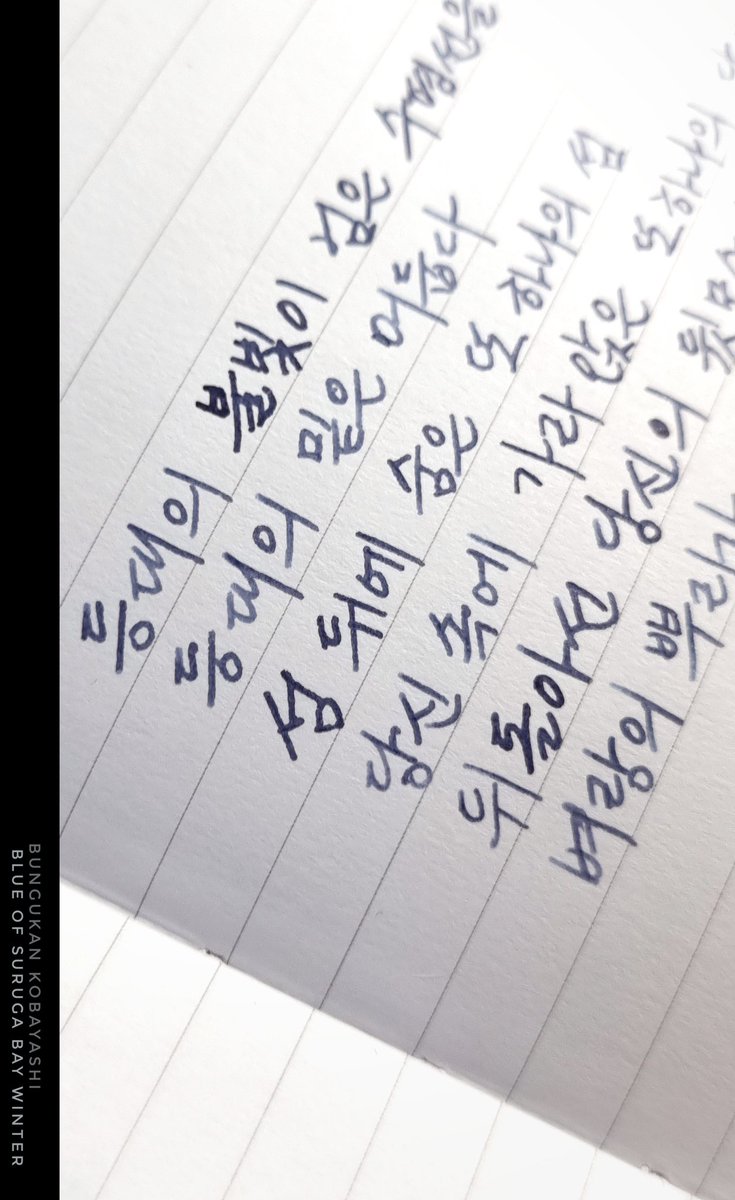 등대의 불빛이 넘은 수평선을
등대의 밑은 어둡다
섬 뒤에 숨은 또 하나의 섬
당신 속에 가라앉은 또 하나의
뒤돌아선 당신의
벼랑의 뿌리
BUNGUKAN KOBAYASHI
BLUE OF SURUGA BAY WINTER